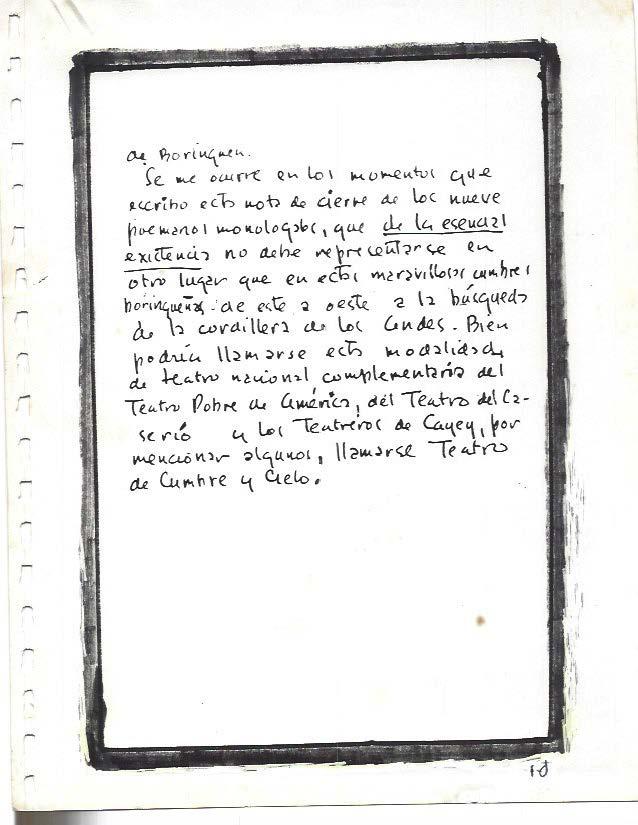 de Borinquen.
Se me ocurre en los momentos que
escribo esta nota de cierre de los nueve
poemanos monologados, que de la esencial
existencia no debe representarse en
otro lugar que en estas maravillosas cumbres
borinqueñas de este a oeste a la búsqueda
de la cordillera de los Andes. Bien
podría llamarse esta modalidad
de teatro nacional complementaria del
Teatro Pobre de América, del Teatro del Ca-
serío y los Teatreros de Cayey, por
mencionar algunos, llamarse Teatro
de Cumbre y Cielo.